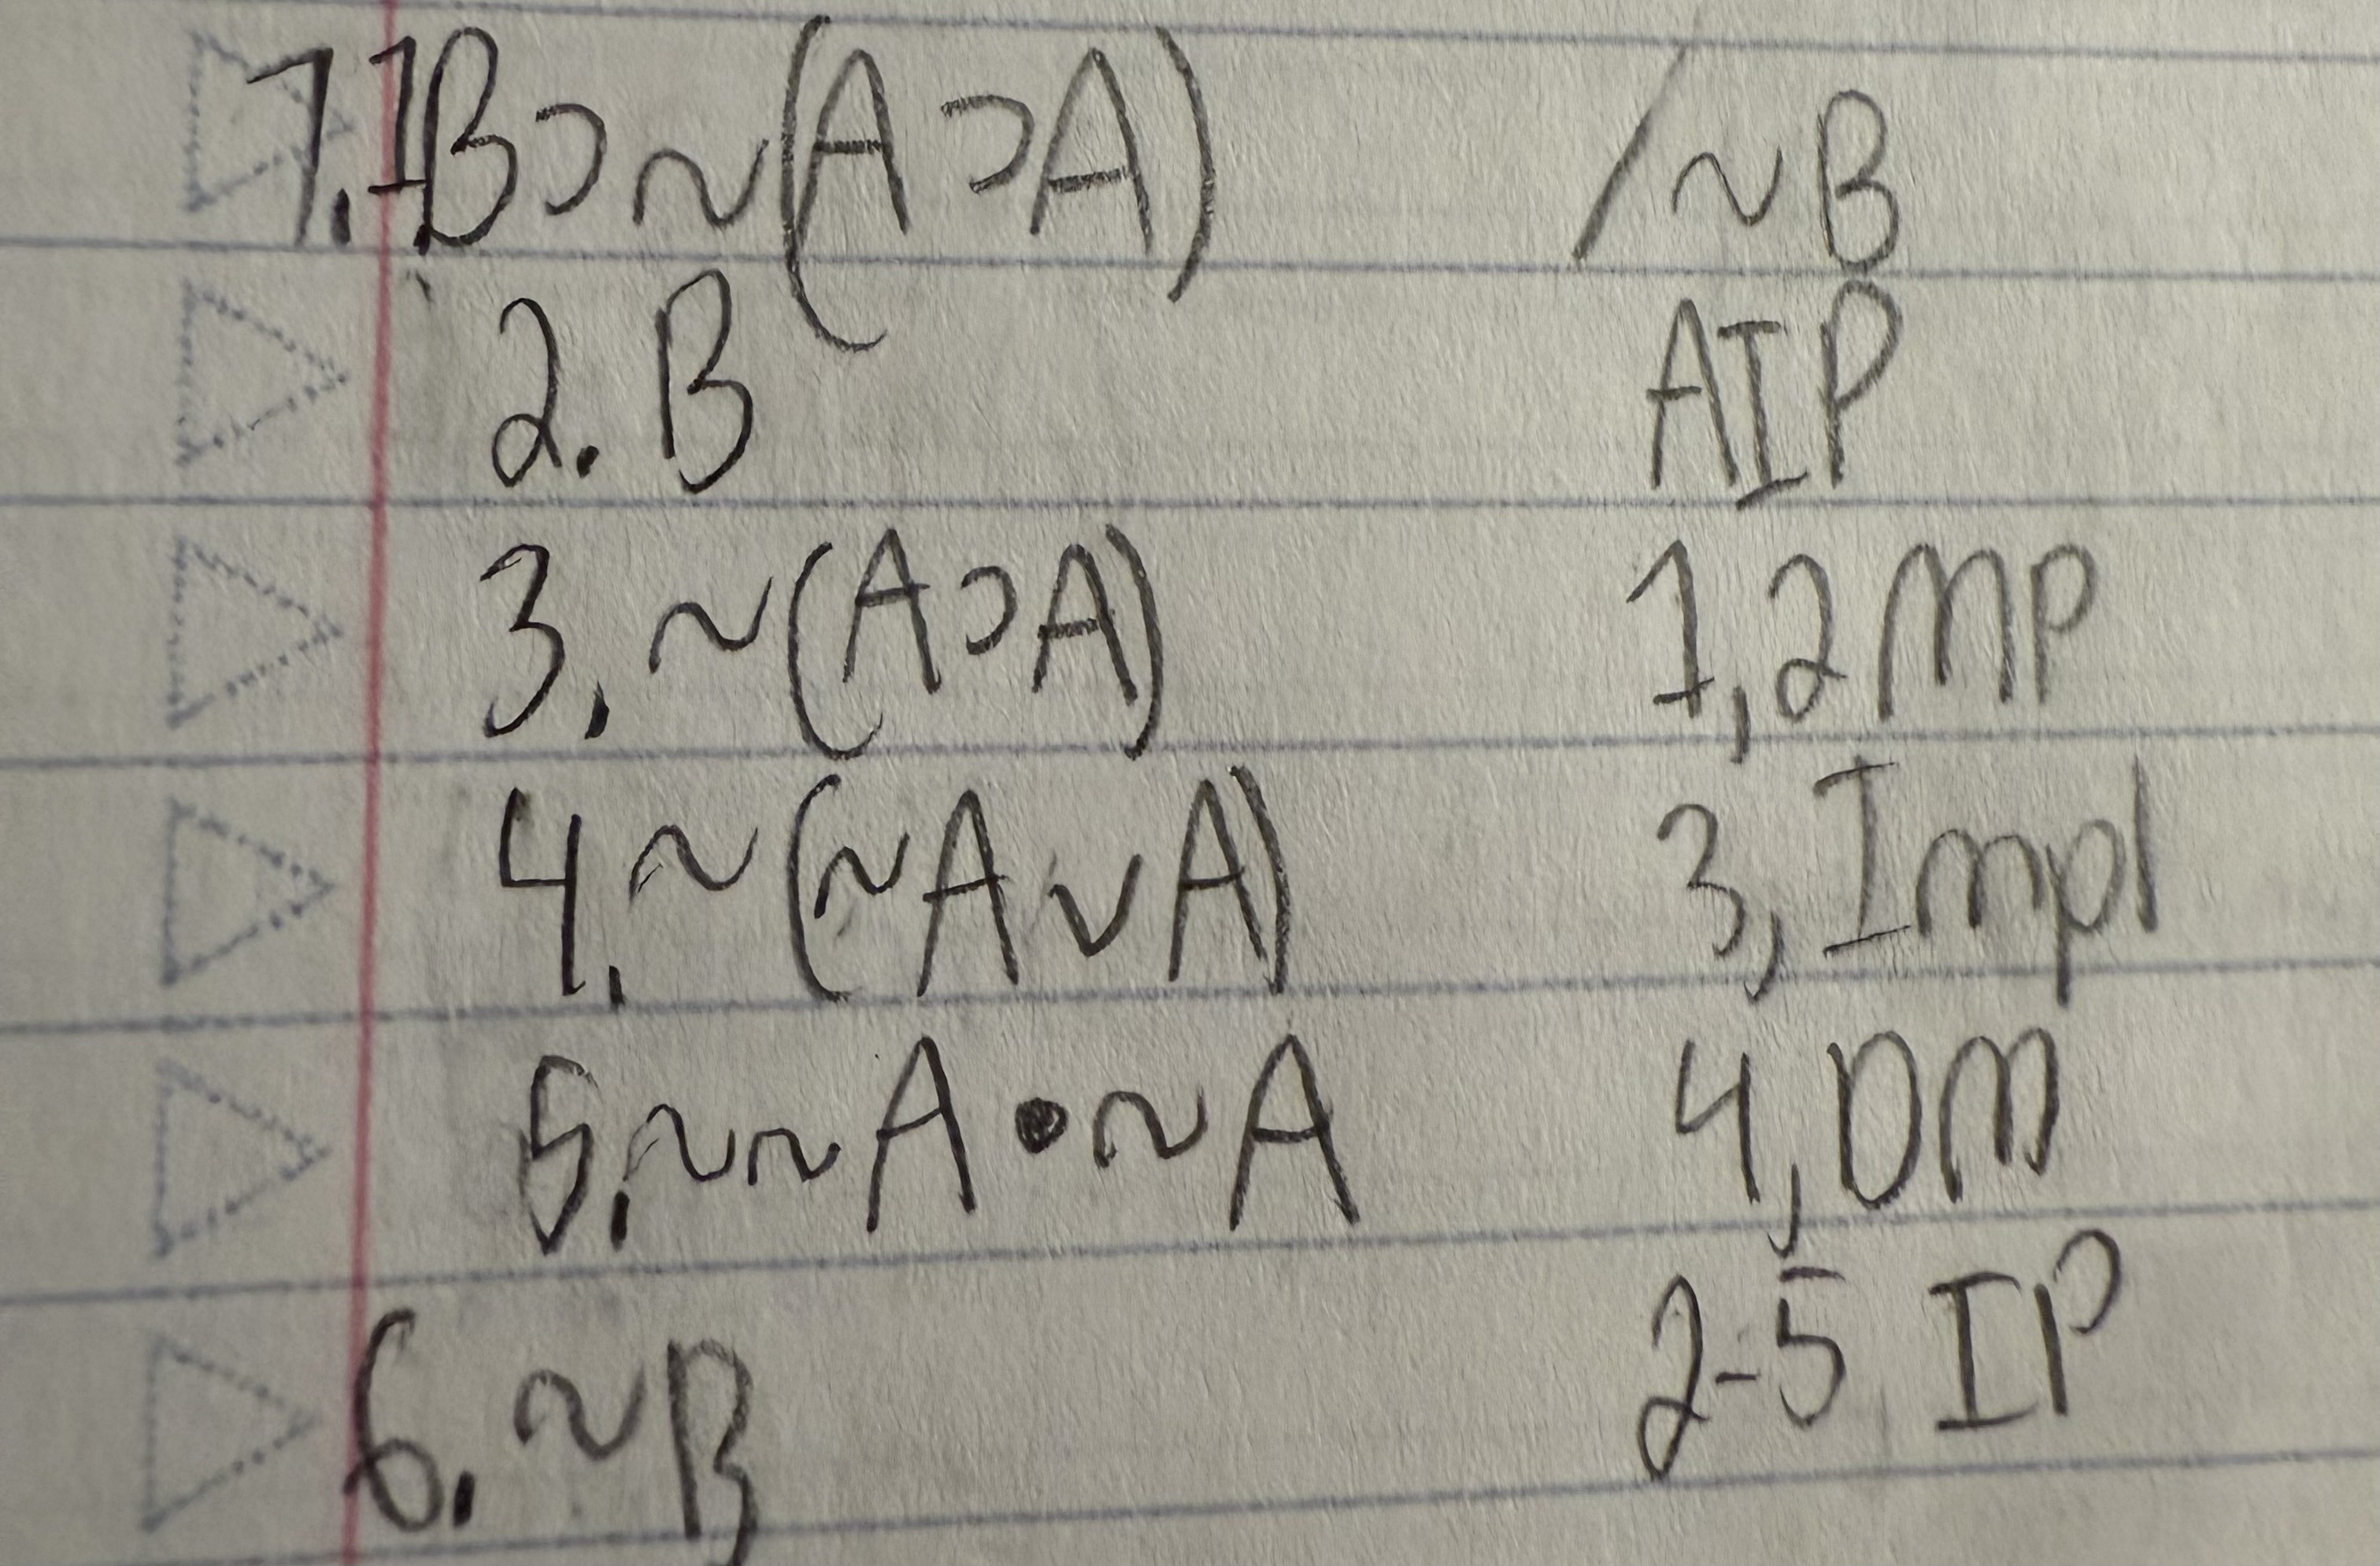 7. 1. B ⊃ ~(A ⊃ A) / ~B
2. B AIP
3. ~(A ⊃ A) 1,2 MP
4. ~(~A v A) 3, Impl
5. ~~A • ~A 4, DM
6. ~B 2-5 IP